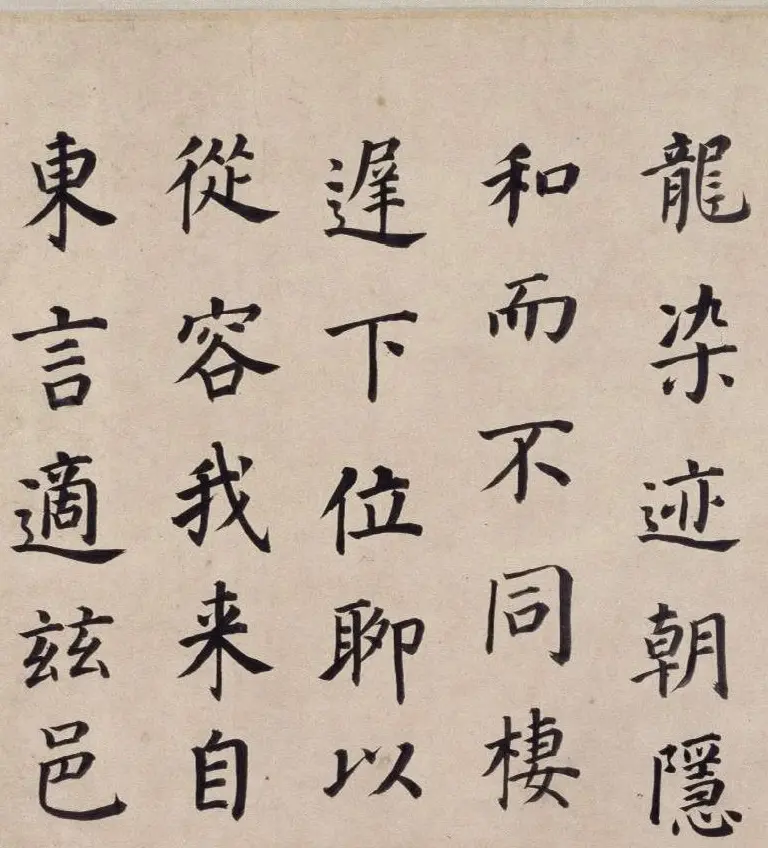 龍染迹朝隱
和而不同棲
遲下位聊以
從容我来自
東言適兹邑